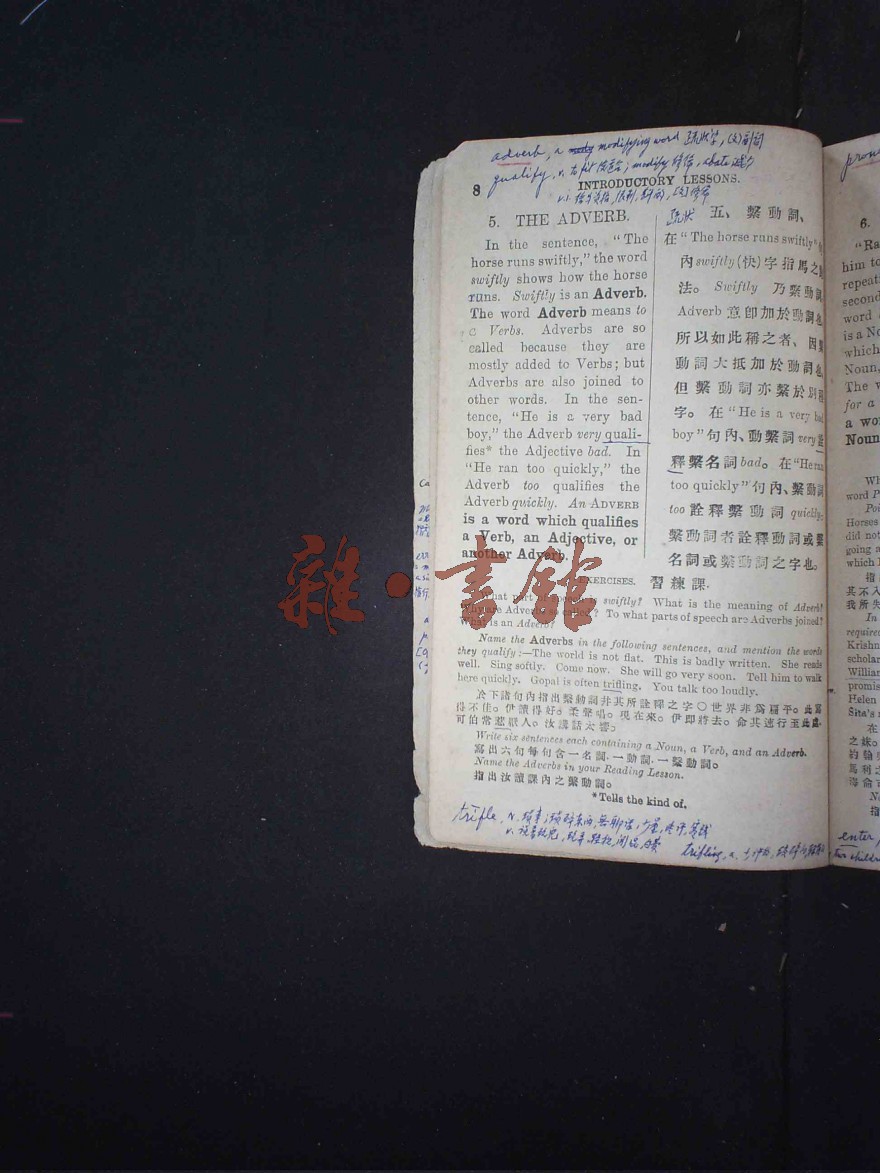 adverb, a modifying word 疏狀字, (文)副詞
qualify, v. to fit modify abate 減少
8 INTRODUCTORY LESSONS.
5. THE ADVERB.
In the sentence, “The
horse runs swiftly,” the word
swiftly shows how the horse
runs. Swiftly is an Adverb.
The word Adverb means to
Verbs. Adverbs are so
called because they are
mostly added to Verbs; but
Adverbs are also joined to
other words. In the sen-
tence, “He is a very bad
boy,” the Adverb very quali-
fies* the Adjective bad. In
“He ran too quickly,” the
Adverb too qualifies the
Adverb quickly. An ADVERB
is a word which qualifies
a Verb, an Adjective, or
another Adverb.
疏狀
五、繫動詞、
在“The horse runs swiftly”
內 swiftly (快)字指馬之
法。 Swiftly 乃繫動詞
Adverb 意卽加於動詞也
所以如此稱之者、因
動詞大抵加於動詞也
但繫動詞亦繫於別
字。在“He is a very bad
boy”句內、動繫詞 very 詮
釋繫名詞 bad。在“He ran
too quickly”句內、繫動詞
too 詮釋繫動詞 quickly.
繫動詞者詮釋動詞或繫
名詞或繫動詞之字也。
EXERCISES. 習練課.
What part of speech is swiftly? What is the meaning of Adverb?
Why are Adverbs so called? To what parts of speech are Adverbs joined?
What is an Adverb?
Name the Adverbs in the following sentences, and mention the words
they qualify:—The world is not flat. This is badly written. She reads
well. Sing softly. Come now. She will go very soon. Tell him to walk
here quickly. Gopal is often trifling. You talk too loudly.
於下諸句內指出繫動詞幷其所詮釋之字○世界非爲扁平。此寫
得不佳。伊讀得好。柔聲唱。現在來。伊卽將去。命其速行至此處.
可伯常惹厭人。汝講話太響。
Write six sentences each containing a Noun, a Verb, and an Adverb.
寫出六句每句含一名詞.一動詞.一繫動詞。
Name the Adverbs in your Reading Lesson.
指出汝讀課內之繫動詞。
*Tells the kind of.
trifle, n. 瑣事;
trifling, a.
雜·書館
pron
6.
“Ra
him to
repeat
second
word
is a No
which
Noun,
The w
for a
a wor
Noun
Wh
word P
Poi
Horses
did not
going a
which
指
其不入
我所失
In
require
Krishn
scholar
William
promis
Helen
Sita's
在
之妹。
約翰
馬利之
海侖可
N
指
enter
children